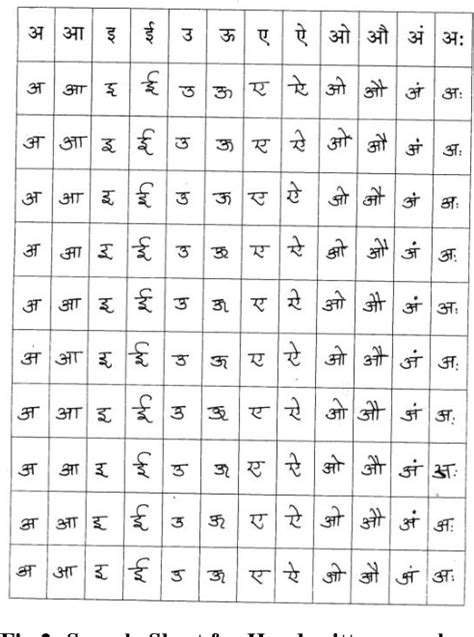 अ आ इ ई उ ऊ ए ऐ ओ औ अं अः
अ आ इ ई उ ऊ ए ऐ ओ औ अं अः
अ आ इ ई उ ऊ ए ऐ ओ औ अं अः
अ आ इ ई उ ऊ ए ऐ ओ औ अं अः
अ आ इ ई उ ऊ ए ऐ ओ औ अं अः
अ आ इ ई उ ऊ ए ऐ ओ औ अं अः
अ आ इ ई उ ऊ ए ऐ ओ औ अं अः
अ आ इ ई उ ऊ ए ऐ ओ औ अं अः
अ आ इ ई उ ऊ ए ऐ ओ औ अं अः
अ आ इ ई उ ऊ ए ऐ ओ औ अं अः
अ आ इ ई उ ऊ ए ऐ ओ औ अं अः